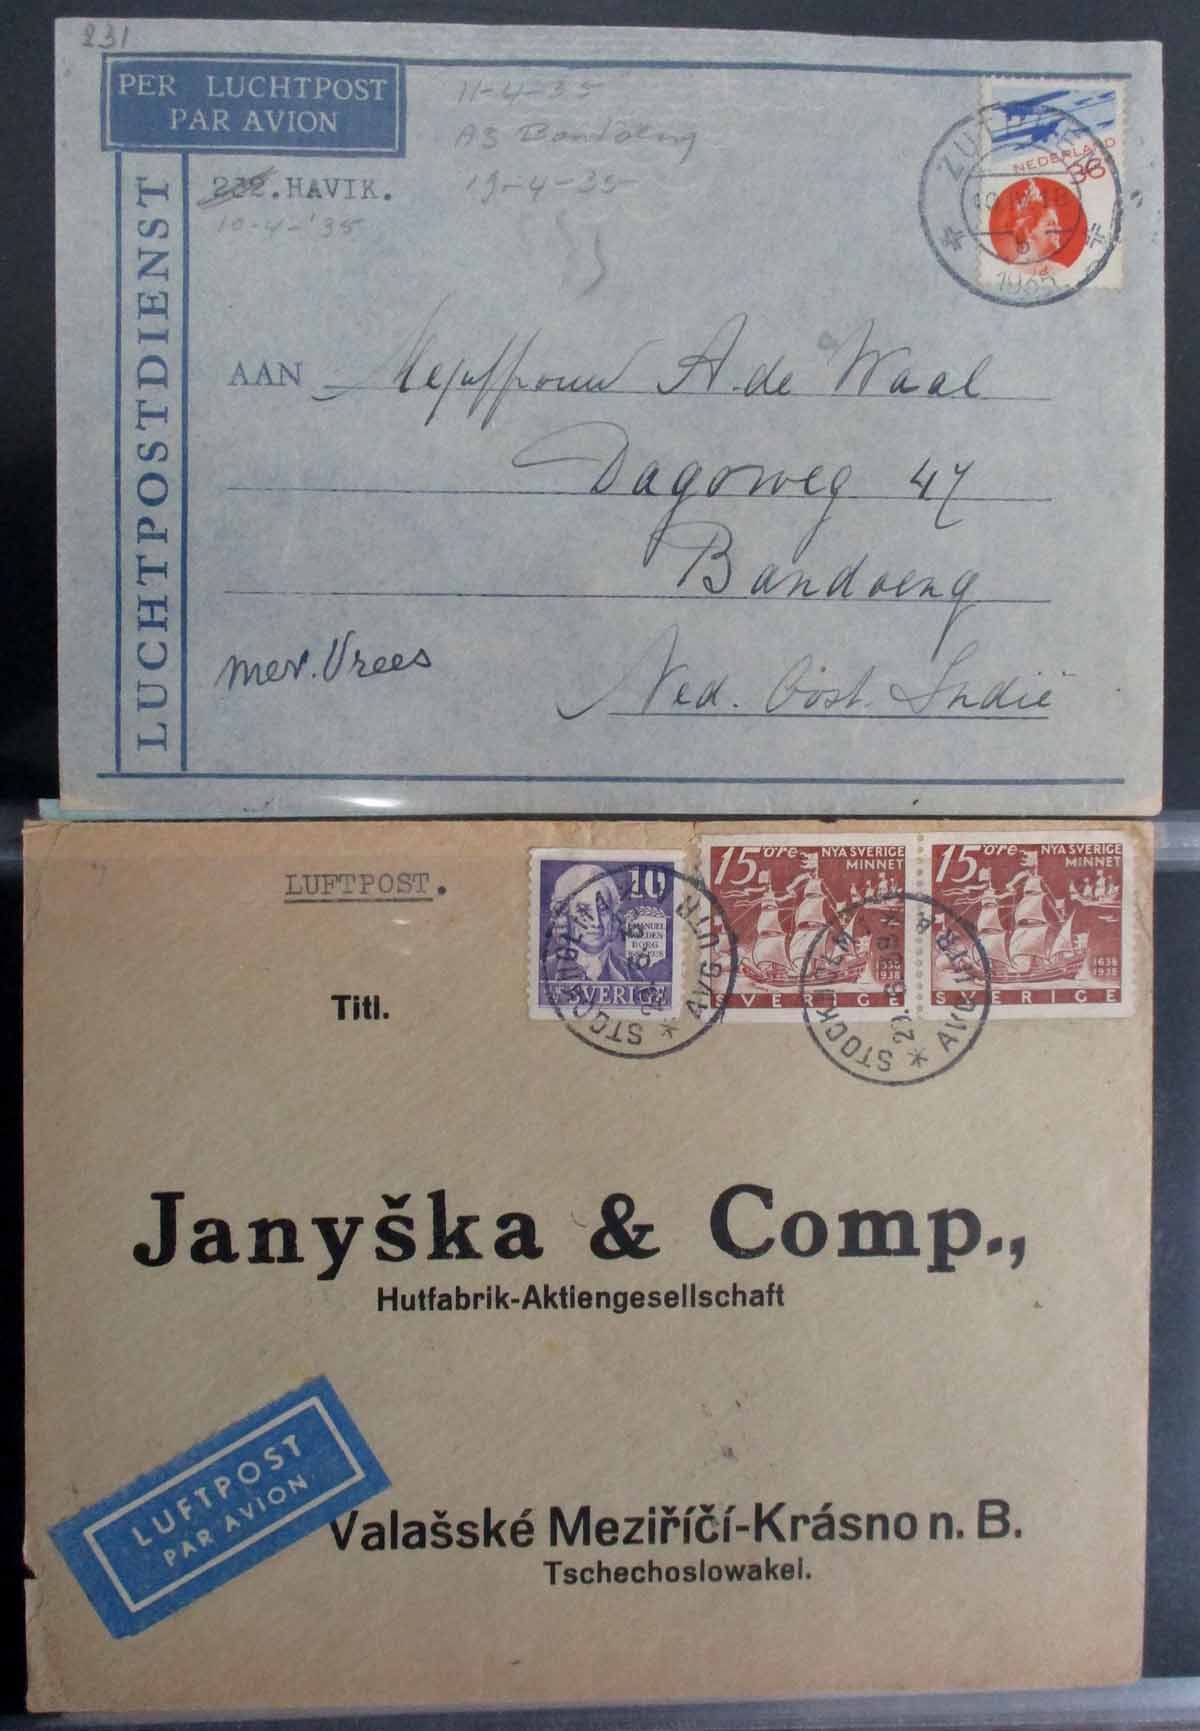 231
PER LUCHTPOST
PAR AVION
11-4-35
AS Bandoeng
19-4-35
232.HAVIK.
10-4-'35
LUCHTPOSTDIENST
NEDERLAND
36
ZUTPHEN
1935
AAN Mejuffrouw A. de Waal
Dagoweg 47
Bandoeng
Ned. Oost. Indië
mev. Vrees
LUFTPOST.
10
EMANUEL
SWEDEN
BORG
SVERIGE
15 öre NYA SVERIGE
MINNET
1638
1938
SVERIGE
15 öre NYA SVERIGE
MINNET
1638
1938
SVERIGE
STOCKHOLM
AVG UTR
STOCKHOLM
AVG UTR
Titl.
Janyška & Comp.,
Hutfabrik-Aktiengesellschaft
LUFTPOST
PAR AVION
Valašské Meziříčí-Krásno n. B.
Tschechoslowakei.